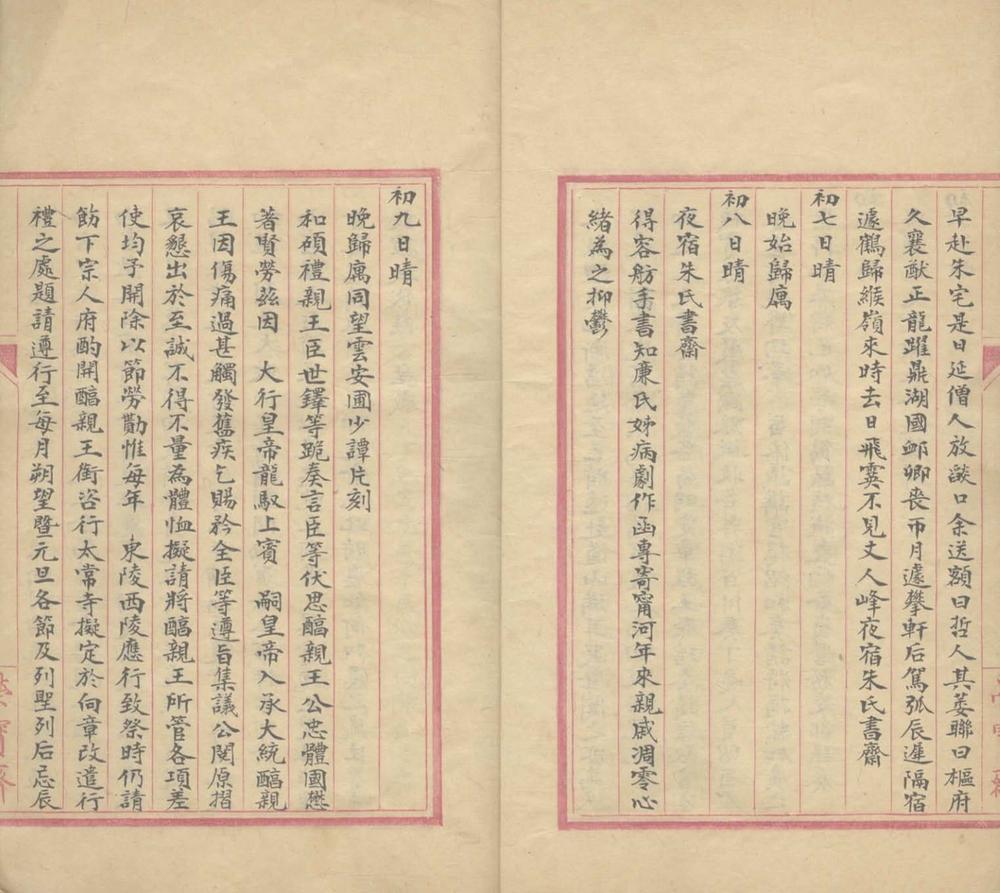 早赴朱宅是日延僧人放談口余送額曰哲人其萎聯曰樞府
久襄猷正龍躍鼎湖國卹卿喪帀月遽攀軒后駕弧辰遲隔宿
遽鶴歸緱嶺來時去日飛霙不見丈人峰夜宿朱氏書齋
初七日晴
晚始歸廎
初八日晴
夜宿朱氏書齋
得容舫手書知廉氏姊病劇作函專寄甯河年來親戚凋零心
緒為之抑鬱
初九日晴
晚歸廎同望雲安圃少譚片刻
和碩禮親王臣世鐸等跪奏言臣等伏思醕親王公忠體國懋
著賢勞茲因 大行皇帝龍馭上賓 嗣皇帝入承大統醕親
王因傷痛過甚觸發舊疾乞賜矜全臣等遵旨集議公閱原摺
哀懇出於至誠不得不量為體恤擬請將醕親王所管各項差
使均予開除以節勞勩惟每年 東陵西陵應行致祭時仍請
飭下宗人府酌開醕親王銜咨行太常寺擬定於向章改遣行
禮之處題請遵行至每月朔望暨元旦各節及列聖列后忌辰